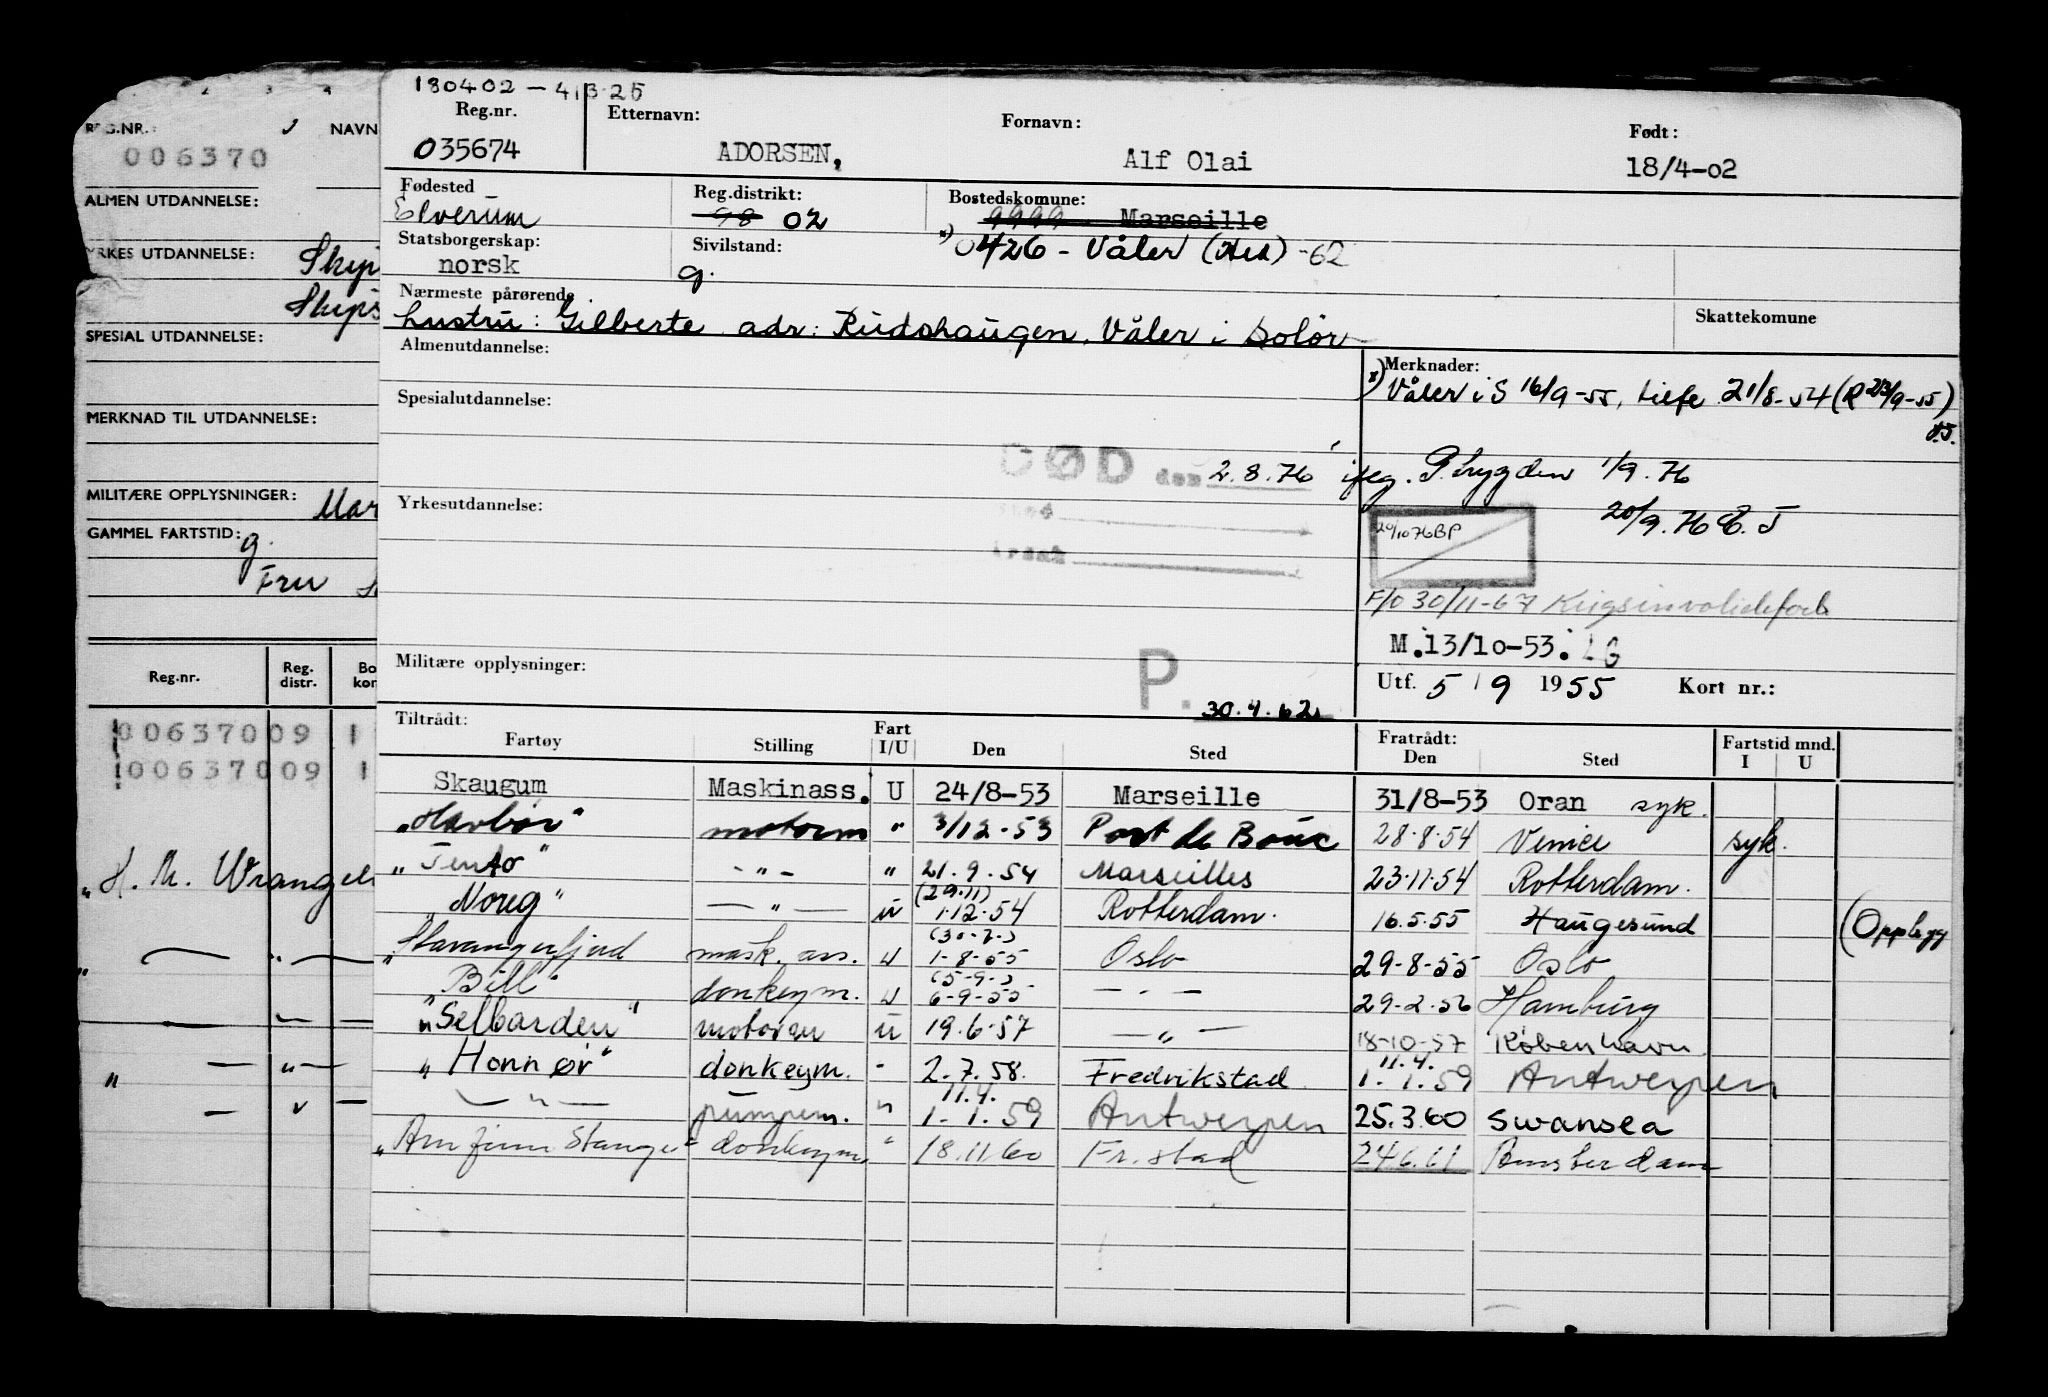 180402 - 41325
Reg.nr. Etternavn: Fornavn: Født:
035674 ADORSEN, Alf Olai 18/4-02
Fødested Reg.distrikt: Bostedskommune:
Elverum 98 02 9999 Marseille
Statsborgerskap: Sivilstand: x) 0426 - Våler (Hed) -62
norsk g.
Nærmeste pårørende Skattekomune
hustru: Gilberte. adr: Rudshaugen, Våler i Solør
Almenutdannelse: Merknader:
x) Våler i S 16/9-55, 21/8-54 (R 23/9-55)
Spesialutdannelse:
DØD den 2.8.76 iflg. P.trygden 1/9.76
Yrkesutdannelse: Sted 20/9.76 E.T
20/10 76 BP
Årsak
F/O 30/11-67 Krigsinvalideforb.
M.13/10-53. LG
Militære opplysninger: P. Utf. 5/9 1955 Kort nr.:
30.4.62
Tiltrådt: Fart Fratrådt: Fartstid mnd.
Fartøy Stilling I/U Den Sted Den Sted I U
Skaugum Maskinass. U 24/8-53 Marseille 31/8-53 Oran syk.
"Havbør" motorm " 3/12-53 Port de Bouc 28-8-54 Venice syk.
"Tento" - " - " 21.9.54 Marseilles 23.11.54 Rotterdam.
(29.11)
"Noreg" - " - u 1.12.54 Rotterdam. 16.5.55 Haugesund (Opplegg
(30-7-)
"Stavangerfjord mask. ass. u 1-8-55 Oslo 29-8-55 Oslo
(5-9-)
"Bill" donkeym. u 6-9-55 - " - 29-2-56 Hamburg
"Selbarden" motorm u 19.6.57 - " - 18-10-57 København
11.4.
"Honnør" donkeym. - 2.7.58. Fredrikstad 1.1.59 Antwerpen
11.4.
- " - pumpem. " 1.1.59 Antwerpen 25.3.60 Swansea
"Arnfinn Stange" donkeym. " 18.11.60 Fr.stad 24.6.61 Amsterdam
REG.NR.: NAVN
006370
ALMEN UTDANNELSE:
YRKES UTDANNELSE: Skip
Skips
SPESIAL UTDANNELSE:
MERKNAD TIL UTDANNELSE:
MILITÆRE OPPLYSNINGER: Mar
GAMMEL FARTSTID: g.
Fru
Reg.nr. Reg. distr. Bo kom
00637009 1
00637009 1
"H. M. Wrangell
" - " -
" - " -
- " -